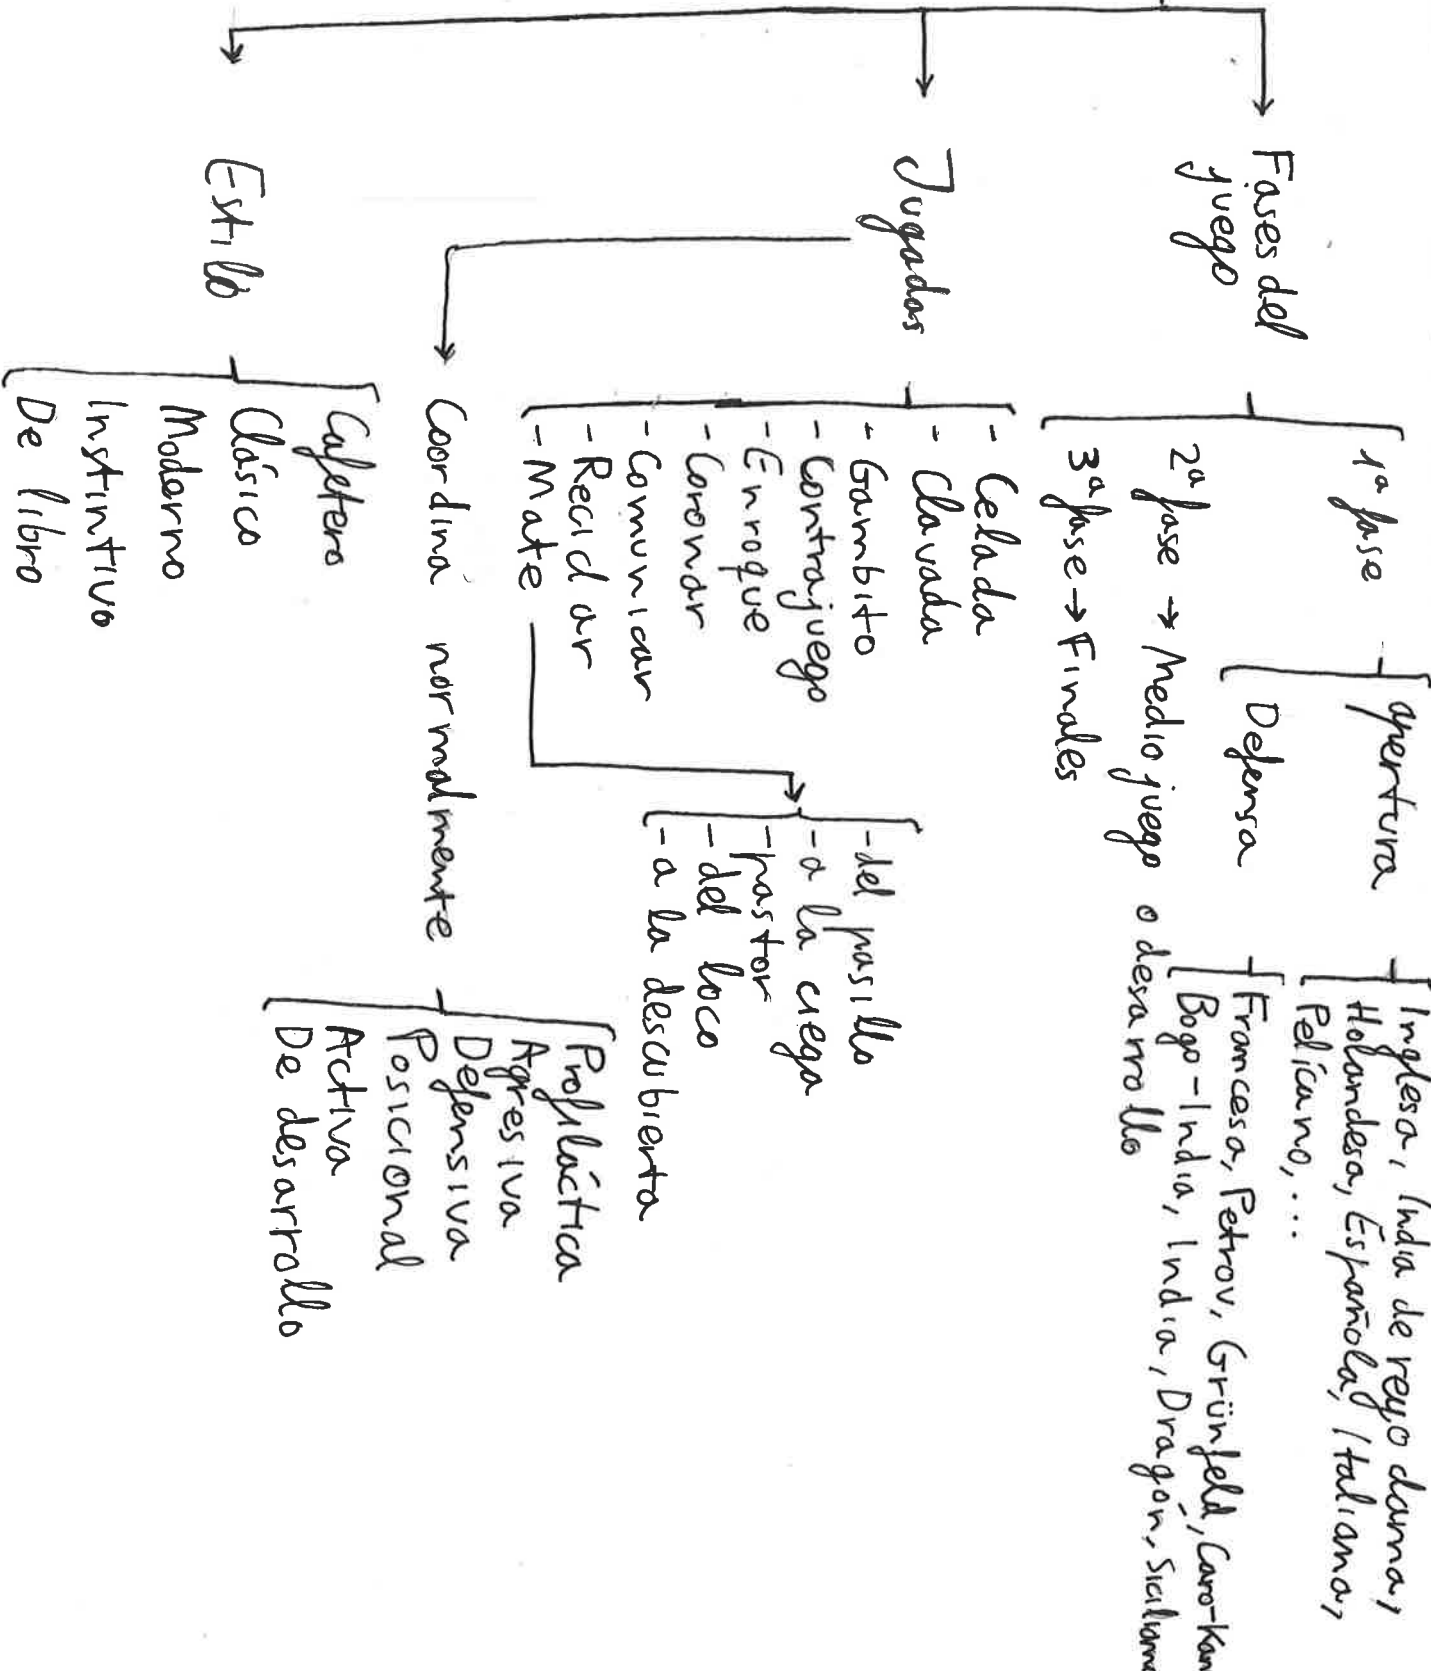 Fases del
juego
1ª fase
apertura
Inglesa, India de rey o dama,
Holandesa, Española, Italiana,
Pelícano, ...
Defensa
Francesa, Petrov, Grünfeld, Caro-Kan
Bogo-India, India, Dragón, Siciliana
2ª fase → Medio juego o desarrollo
3ª fase → Finales
Jugadas
- Celada
- Clavada
- Gambito
- Contrajuego
- Enroque
- Coronar
- Comunicar
- Reciclar
- Mate
- del pasillo
- a la ciega
- pastor
- del loco
- a la descubierta
Coordina normalmente
Profiláctica
Agresiva
Defensiva
Posicional
Activa
De desarrollo
Estilo
Cafetero
Clásico
Moderno
Instintivo
De libro